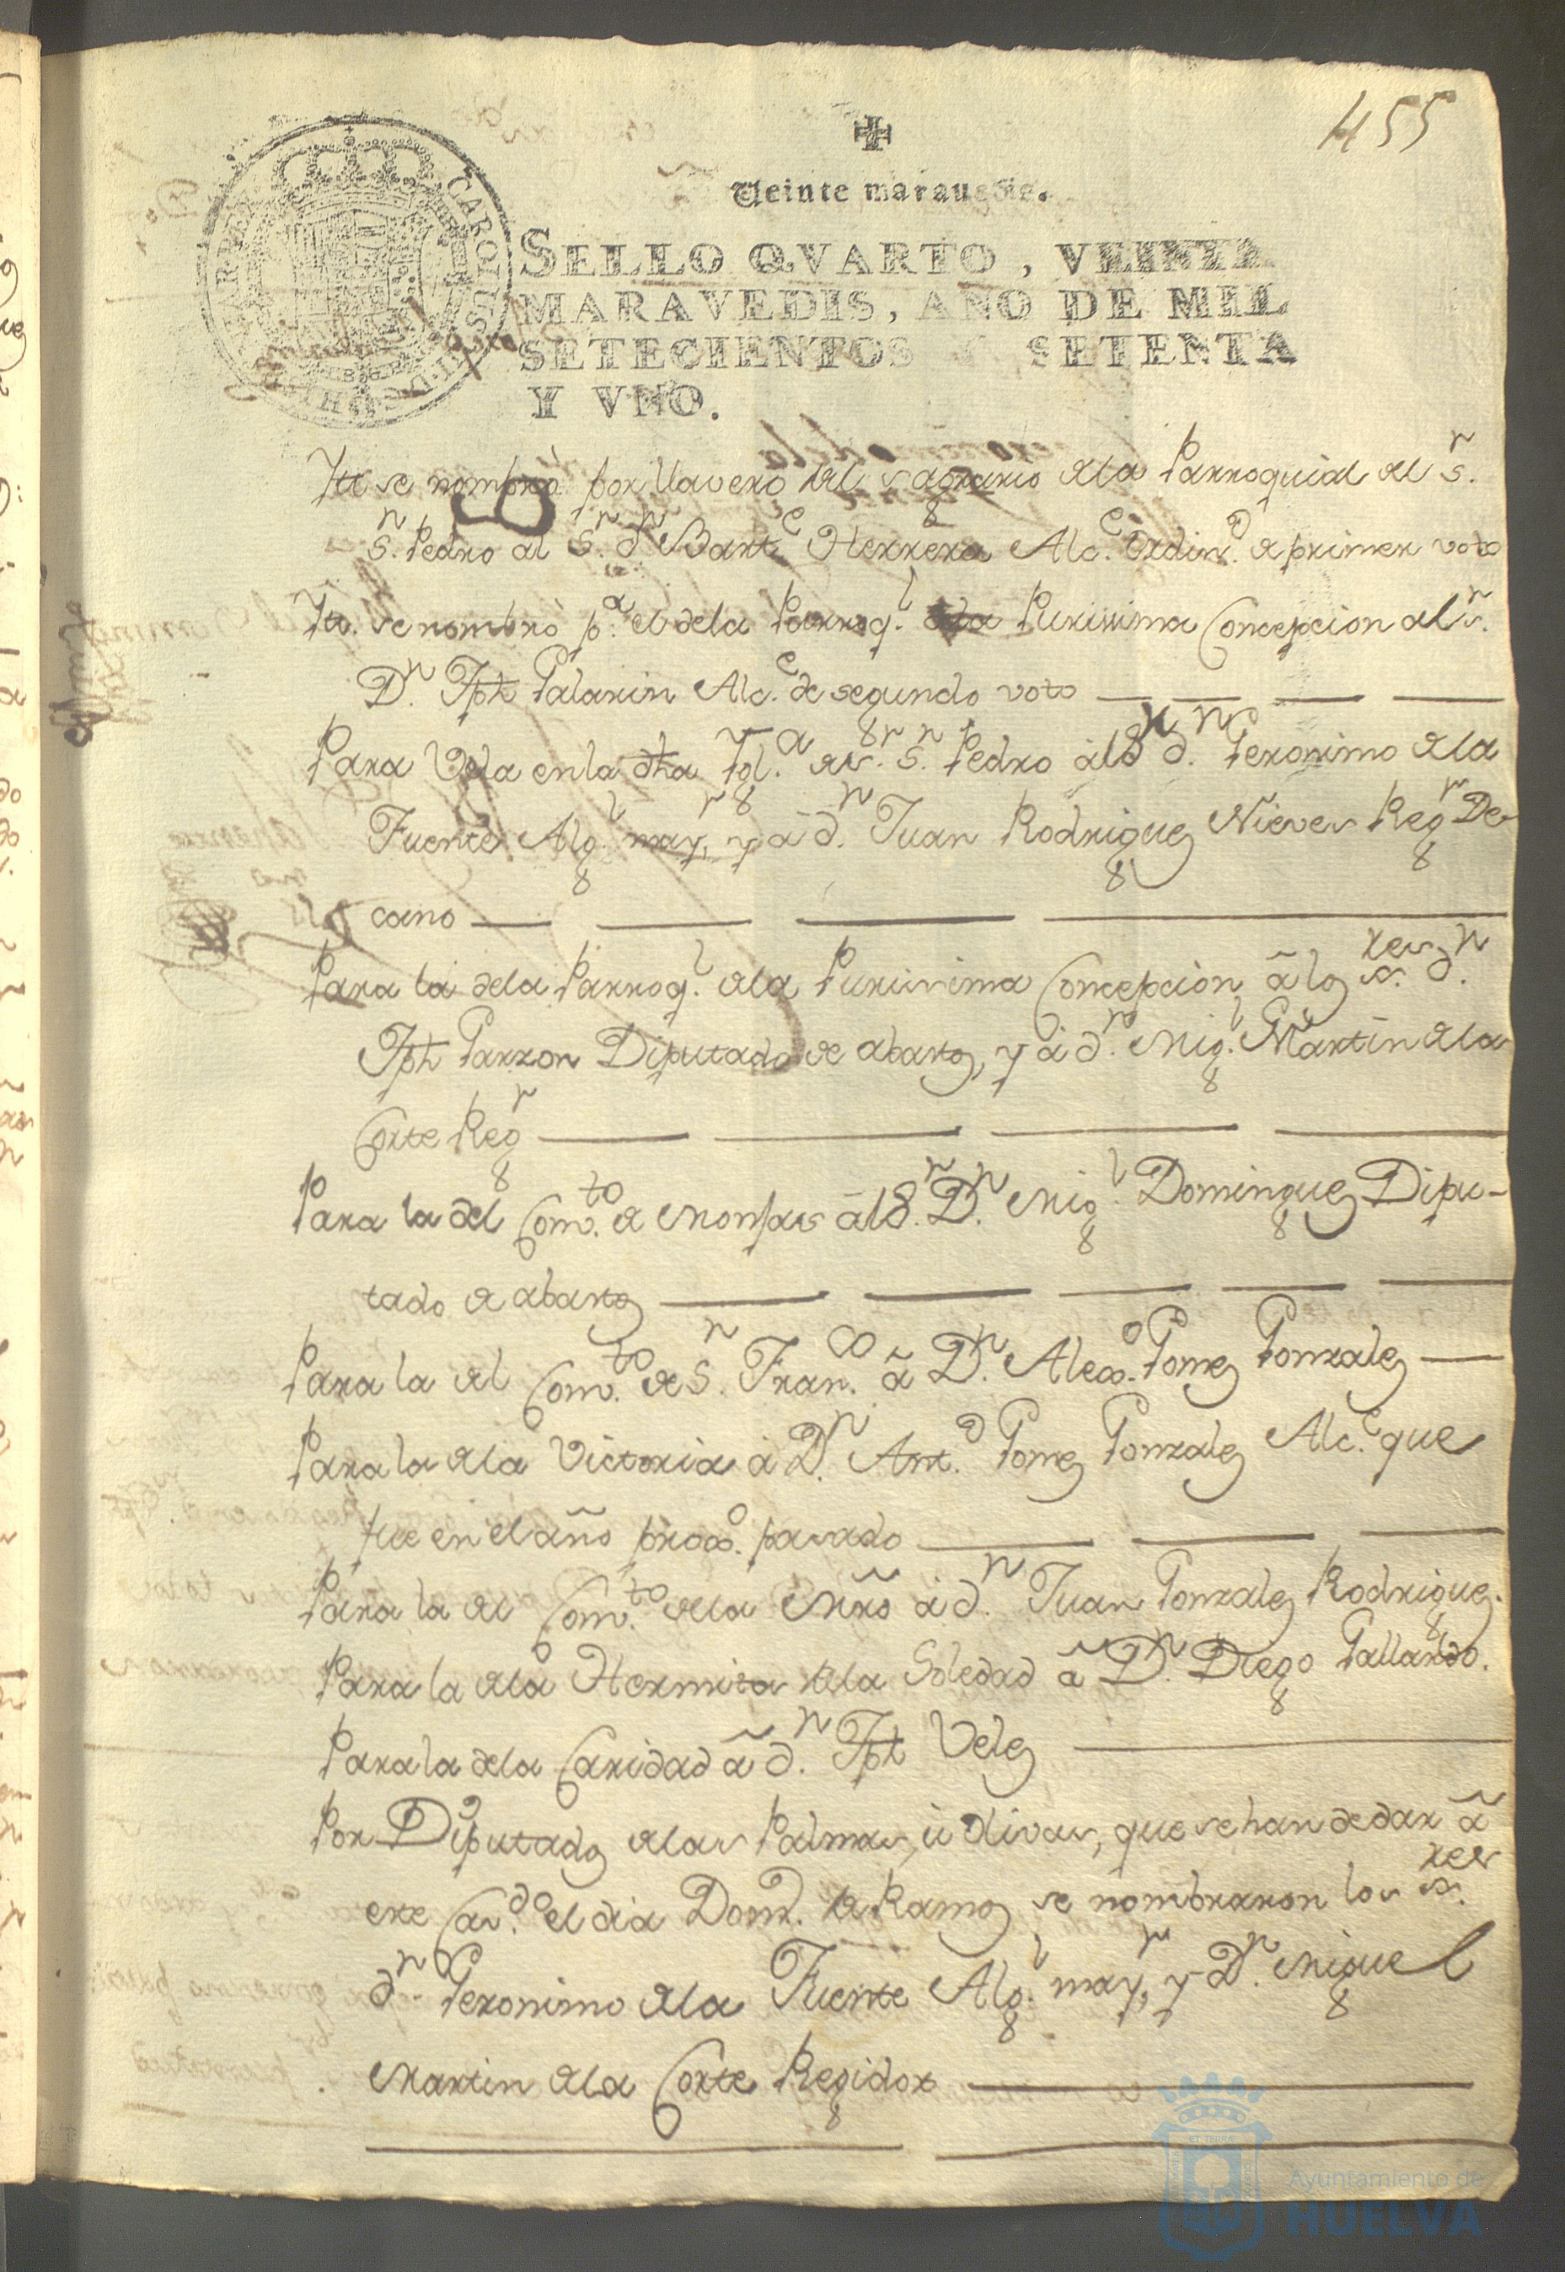 455
Veinte maravedis.
SELLO QVARTO, VEINTE
MARAVEDIS, AÑO DE MIL
SETECIENTOS SETENTA
Y VNO.
Itt se nombrò por llavero del sagrario de la Parroquial del Sr.
Sn. Pedro al Sr. Dn Barte Herrera Alce. Ordino. de primer voto
Itt. se nombrò pa. el de la Parroql. de la Purissima Concepcion al Sr.
Dn. Jph Galarin Alce. de segundo voto
Para Vela en la dha Igla. de Sr. Sn. Pedro al Sr. dn. Geronimo de la
Fuente Algl. mayr, y a dn. Juan Rodriguez Nieves Regr De-
cano
Para la de la Parroql. de la Purissima Concepcion, a los sres. dn.
Jph Garzon Diputado de abastos, y a dn. Migl. Martin de la
Corte Regr
Para la del Comto. de Monjas al Sr. Dn. Migl. Dominguez Dipu-
tado de abastos
Para la del Comto. de Sn. Franco. a Dn. Alexo. Gomez Gonzalez
Para la de la Victoria a Dn. Anto. Gomez Gonzalez Alce. que
fue en el año proxo. pasado
Para la del Comto. de la Mrd a dn. Juan Gonzalez Rodriguez.
Para la de la Hermita de la Soledad a Dn. Diego Gallardo.
Para la de la Caridad a dn. Jph Velez
Por Diputados de las Palmas, ù olivas, que se han de dar a
este Cavdo. el dia Domo. de Ramos se nombraron los sres.
dn. Geronimo de la Fuente Algl. mayr, y Dn. Miguel
Martin de la Corte Regidor
Ayuntamiento de
HUELVA